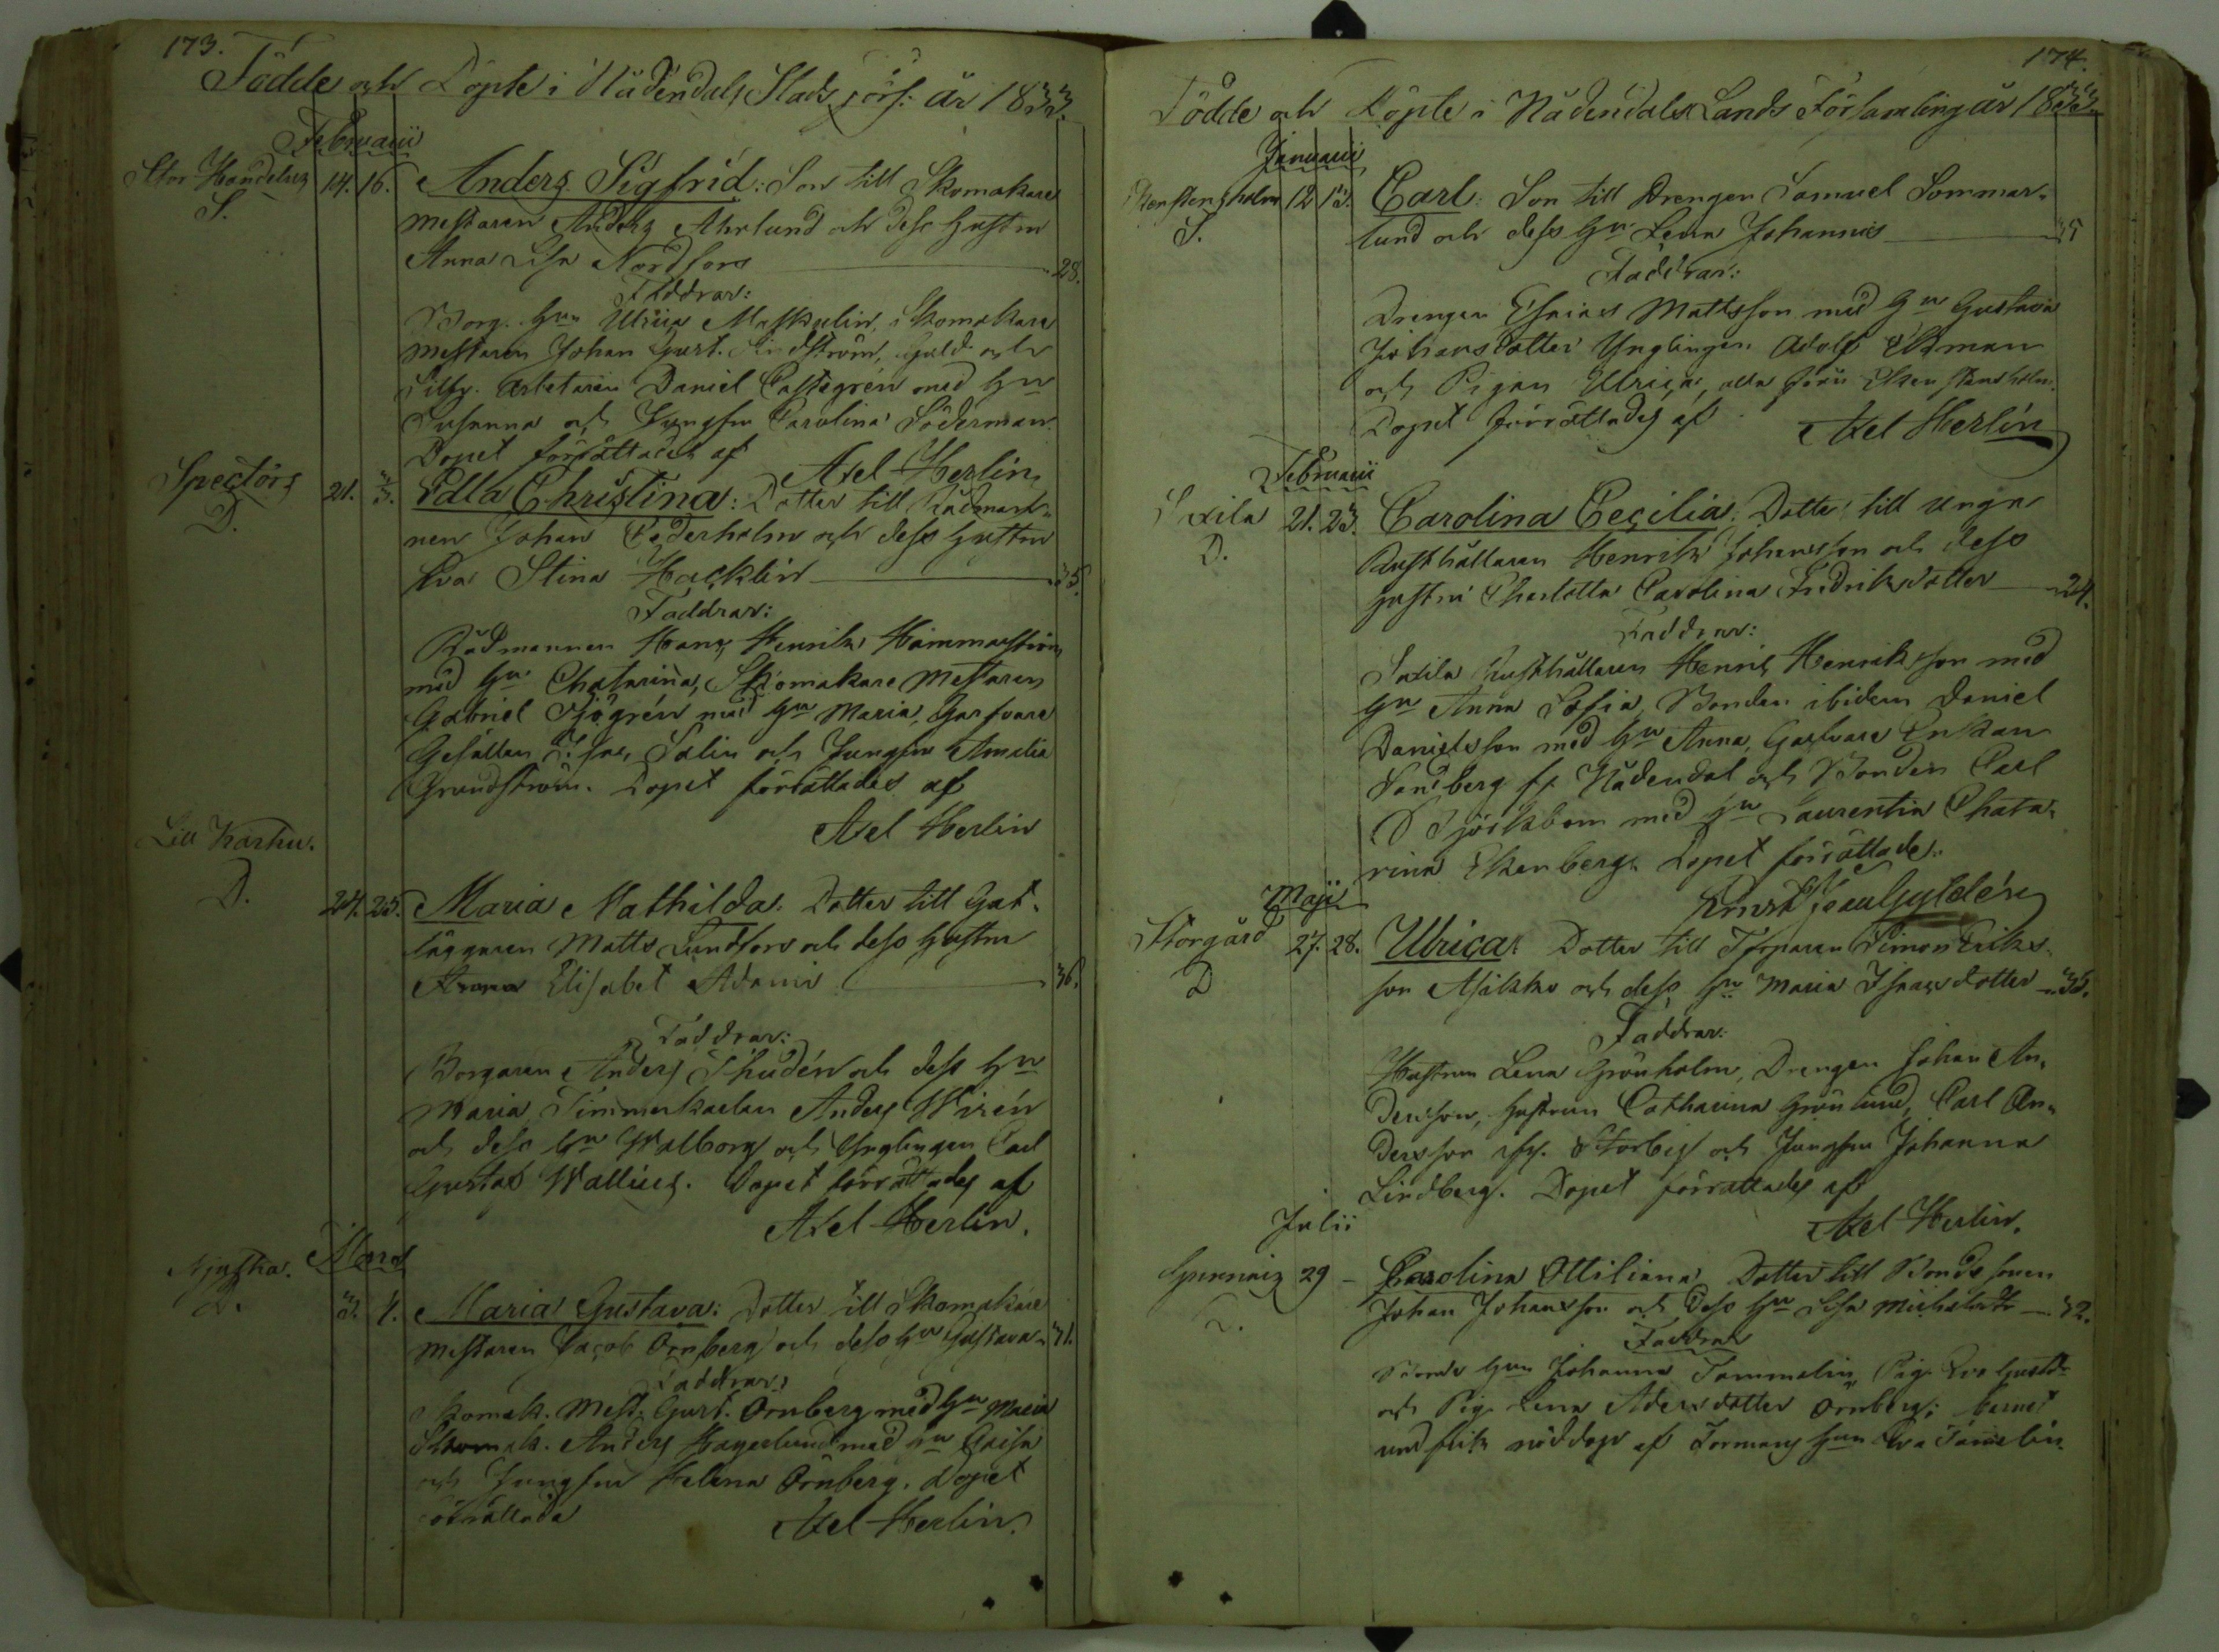 173.
Födde och Döpte i Nådendals Stads förs: år 1833.
Februarii
Stor Handelus 14. 16. Anders Sigfrid: Son till Skomakare
S. mestaren Anders Ahrlund och dess hustru
Anna Lisa Nordfors 28.
Faddrar:
Borg. Hun Ulrica Maskulin, Skomakare
mestaren Johan Gust. Lindström, Guld och
Silfv. arbetaren Daniel Castegrén med Hu
Susanna och Jungfru Carolina Söderman.
Dopet förrättades af
Axel Herlin.
Spectörs 21. 3. Edla Christina: Dotter till Rådman-
D. nen Johan Cederholm och dess hustru
Eva Stina Hacklin 35.
Faddrar:
Rådmannen Hans Henrik Hammarström
med Hu Chatarina, Skomakare mestaren
Gabriel Sjögrén med Hu Maria, Garfvare
Gesällen Isac Salin och Jungfru Amalia
Grundström. Dopet förrättades af
Axel Herlin
Lill Karhu.
D. 24. 25. Maria Mathilda: Dotter till Gat-
läggaren Matts Lundfors och dess hustru
Anna Elisabet Adami 36.
Faddrar:
Borgaren Anders Thudén och dess Hu
Maria Timmerkarlen Anders Wirén
och dess Hu Walborg och Ynglingen Carl
Gustaf Wallius. Dopet förrättades af
Axel Herlin.
Mars
D. 3. 4. Maria Gustava: Dotter till Skomakare
mestaren Jacob Örnberg och dess Hu Gustava 41.
Faddrar:
Skomak. Mest. Gust. Örnberg med Hu Maria
Skomak. Anders Hagerlund med Hu Caisa
och Jungfru Helena Örnberg. Dopet
förrättade
Axel Herlin.
174.
Födde och Döpte i Nådendals Lands Församling år 1833.
Januarii
Ekenstensholm 12 13. Carl: Son till Drengen Samuel Sommar-
S. lund och dess Hu Lena Johannis
Faddrar:
Drengen Esaias Mattsson med Hu Gustava
Johansdotter Ynglingen Adolf Ekman
och Pigan Ulrica, alla från Ekenstensholm.
Dopet förrättades af
Axel Herlin
Februarii
Saxila 21. 23. Carolina Cecilia: Dotter till unga
D. Rusthållaren Henrik Johansson och dess
hustru Charlotta Carolina Fredriksdotter 24.
Faddrar:
Saxila Rusthållaren Henric Henriksson med
Hu Anna Sofia, Bonden ibidem Daniel
Danielsson med Hu Anna, Garfvare Enkan
Sandberg fr Nådendal och Bonden Carl
Björkbom med Hu Laurentia Chata-
rina Ekenberg. Dopet förrättade:
Ernst Gyldén
Maji
Storgård 27. 28. Ulrica: Dotter till Torparen Simon Eriks-
D son och dess Hu Maria Isacsdotter 33.
Faddrar:
Hustrun Lena Grönholm, Drengen Johan An-
dersson, hustrun Catharina Grönlund, Carl An-
dersson och Jungfru Johanna
Lindberg. Dopet förrättades af
Axel Herlin.
Julii
29 – Carolina Ottiliana Dotter till Bonde sonen
D. Johan Johansson och dess Hu Lisa Michelsdtr 32.
Faddrar
Bonde Hun Johanna Tammelin, Pig. Eva Gustdr
och Pig. Lena Andersdotter Örnberg; barnet
undfick nöddop af Hun Eva Tamelin.